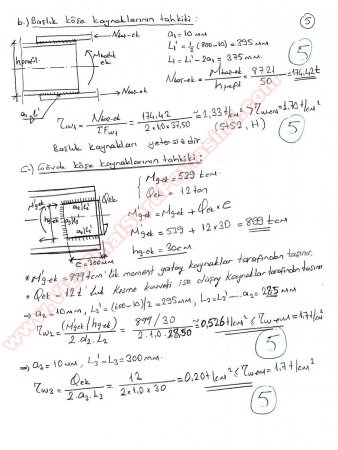 b.) Başlık köşe kaynaklarının tahkiki:
5
a₁=10mm
L₁'=½(800-10)=395mm
L₁=L₁'-2a₁=375mm.
Nbaş-ek = Mbaşlık-ek / hprofil = 8721/50 = 174,42t
5
hprofil
Mbaşlık-ek
Nbaş-ek
Nbaş-ek
a₁
τw₁ = Nbaş-ek / ΣFw₁ = 174,42 / 2×1.0×37,50 = 2,33t/cm² > τw-em=1.70t/cm²
(St52, H)
5
Başlık kaynakları yetersizdir.
C.) Gövde köşe kaynaklarının tahkiki:
Mg-ek = 539 tcm.
Qek = 12 ton
Mg-ek' = Mg-ek + Qek × e
Mg-ek' = 539 + 12×30 = 899 tcm
hg-ek = 30cm
Mg-ek
Qek
a₂|L₂
a₃|L₃
e=300mm
* Mg-ek' = 899tcm'lik moment yatay kaynaklar tarafından taşınır.
* Qek = 12t'luk kesme kuvveti ise düşey kaynaklar tarafından taşınır.
⇒ a₂=10mm, L₂'=(600-10)/2=295mm, L₂=L₂'-a₂=285mm
τw₂ = (Mg-ek'/hg-ek) / 2.a₂.L₂ = 899/30 / 2×1.0×28.50 = 0,526t/cm² < τw-em=1.7t/cm²
5
⇒ a₃=10mm, L₃'=L₃=300mm.
τw₃ = Qek / 2.a₃.L₃ = 12 / 2×1.0×30 = 0.20t/cm² < τw-em=1.7t/cm²
5